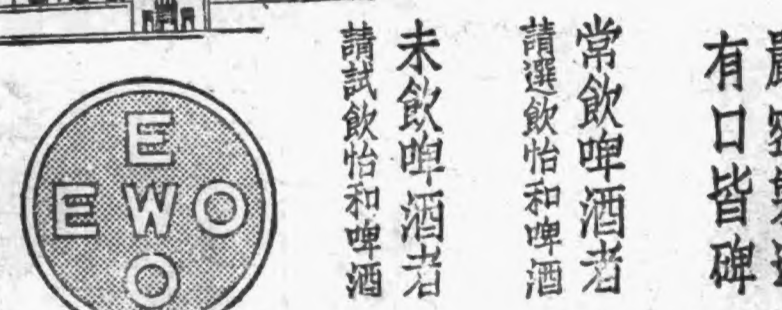 有口皆碑
常飲啤酒者
請選飲怡和啤酒
未飲啤酒者
請試飲怡和啤酒
E
EWO
O